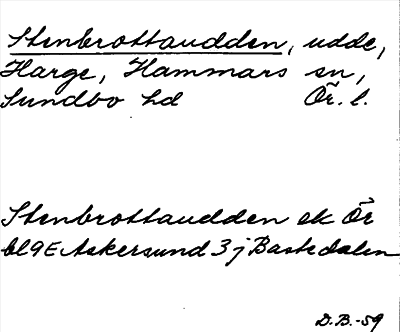 Stenbrottaudden, udde,
Harge, Hammars sn,
Sundbo hd Ör. l.
Stenbrottaudden ek Ör
bl 9E Askersund 3 j Bastedalen
D.B.-59